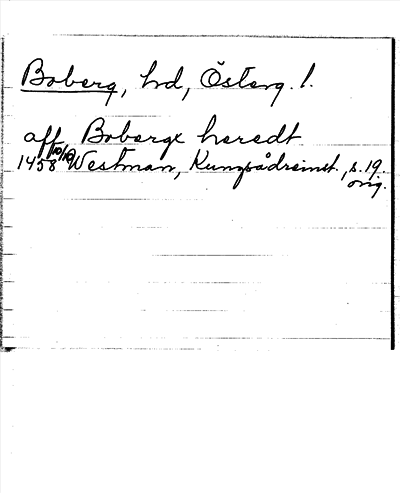 Boberg, hd, Österg. l.
aff Boberge heredt
1458 10/10 Westman, Kungsrådreinst., s. 19.
orig.